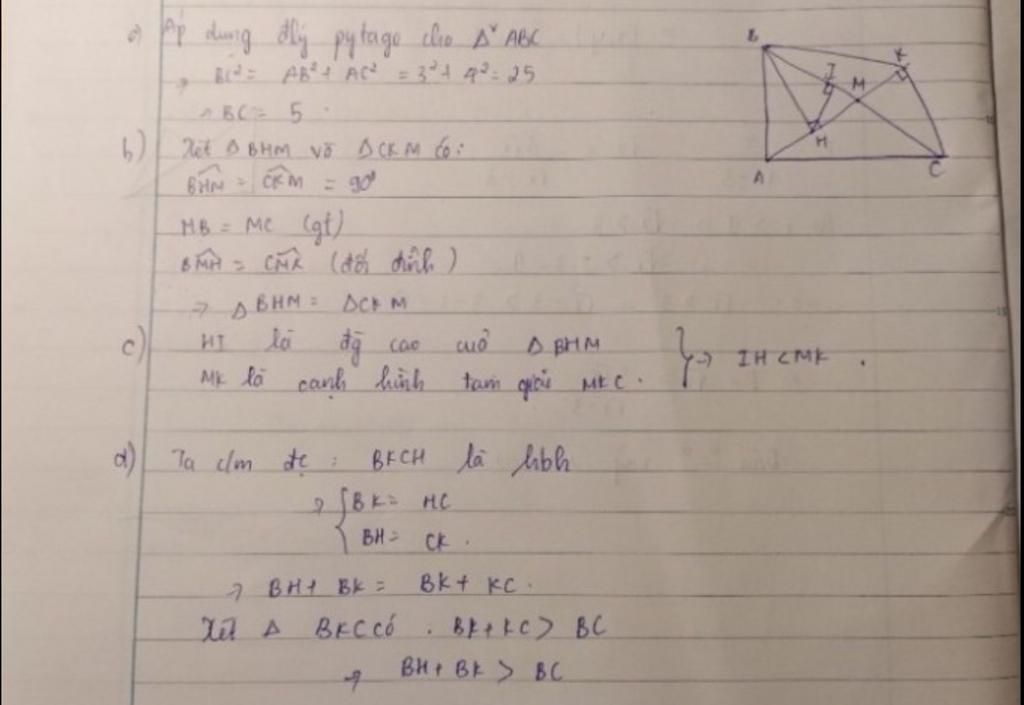 a) Áp dụng đlý pytago cho Δv ABC
→ BC² = AB² + AC² = 3² + 4² = 25
→ BC = 5.
b) Xét Δ BHM và Δ CKM có:
BHM = CKM = 90°
MB = MC (gt)
BMH = CMK (đối đỉnh)
→ Δ BHM = Δ CKM
c) HI là đg cao cuả Δ BHM
MK là cạnh hình tam giác MKC.
} → IH < MK.
d) Ta c/m đc : BKCH là hbh
→ { BK = HC
BH = CK.
→ BH + BK = BK + KC.
Xét Δ BKC có . BK + KC > BC
→ BH + BK > BC
B
I
K
M
H
A
C